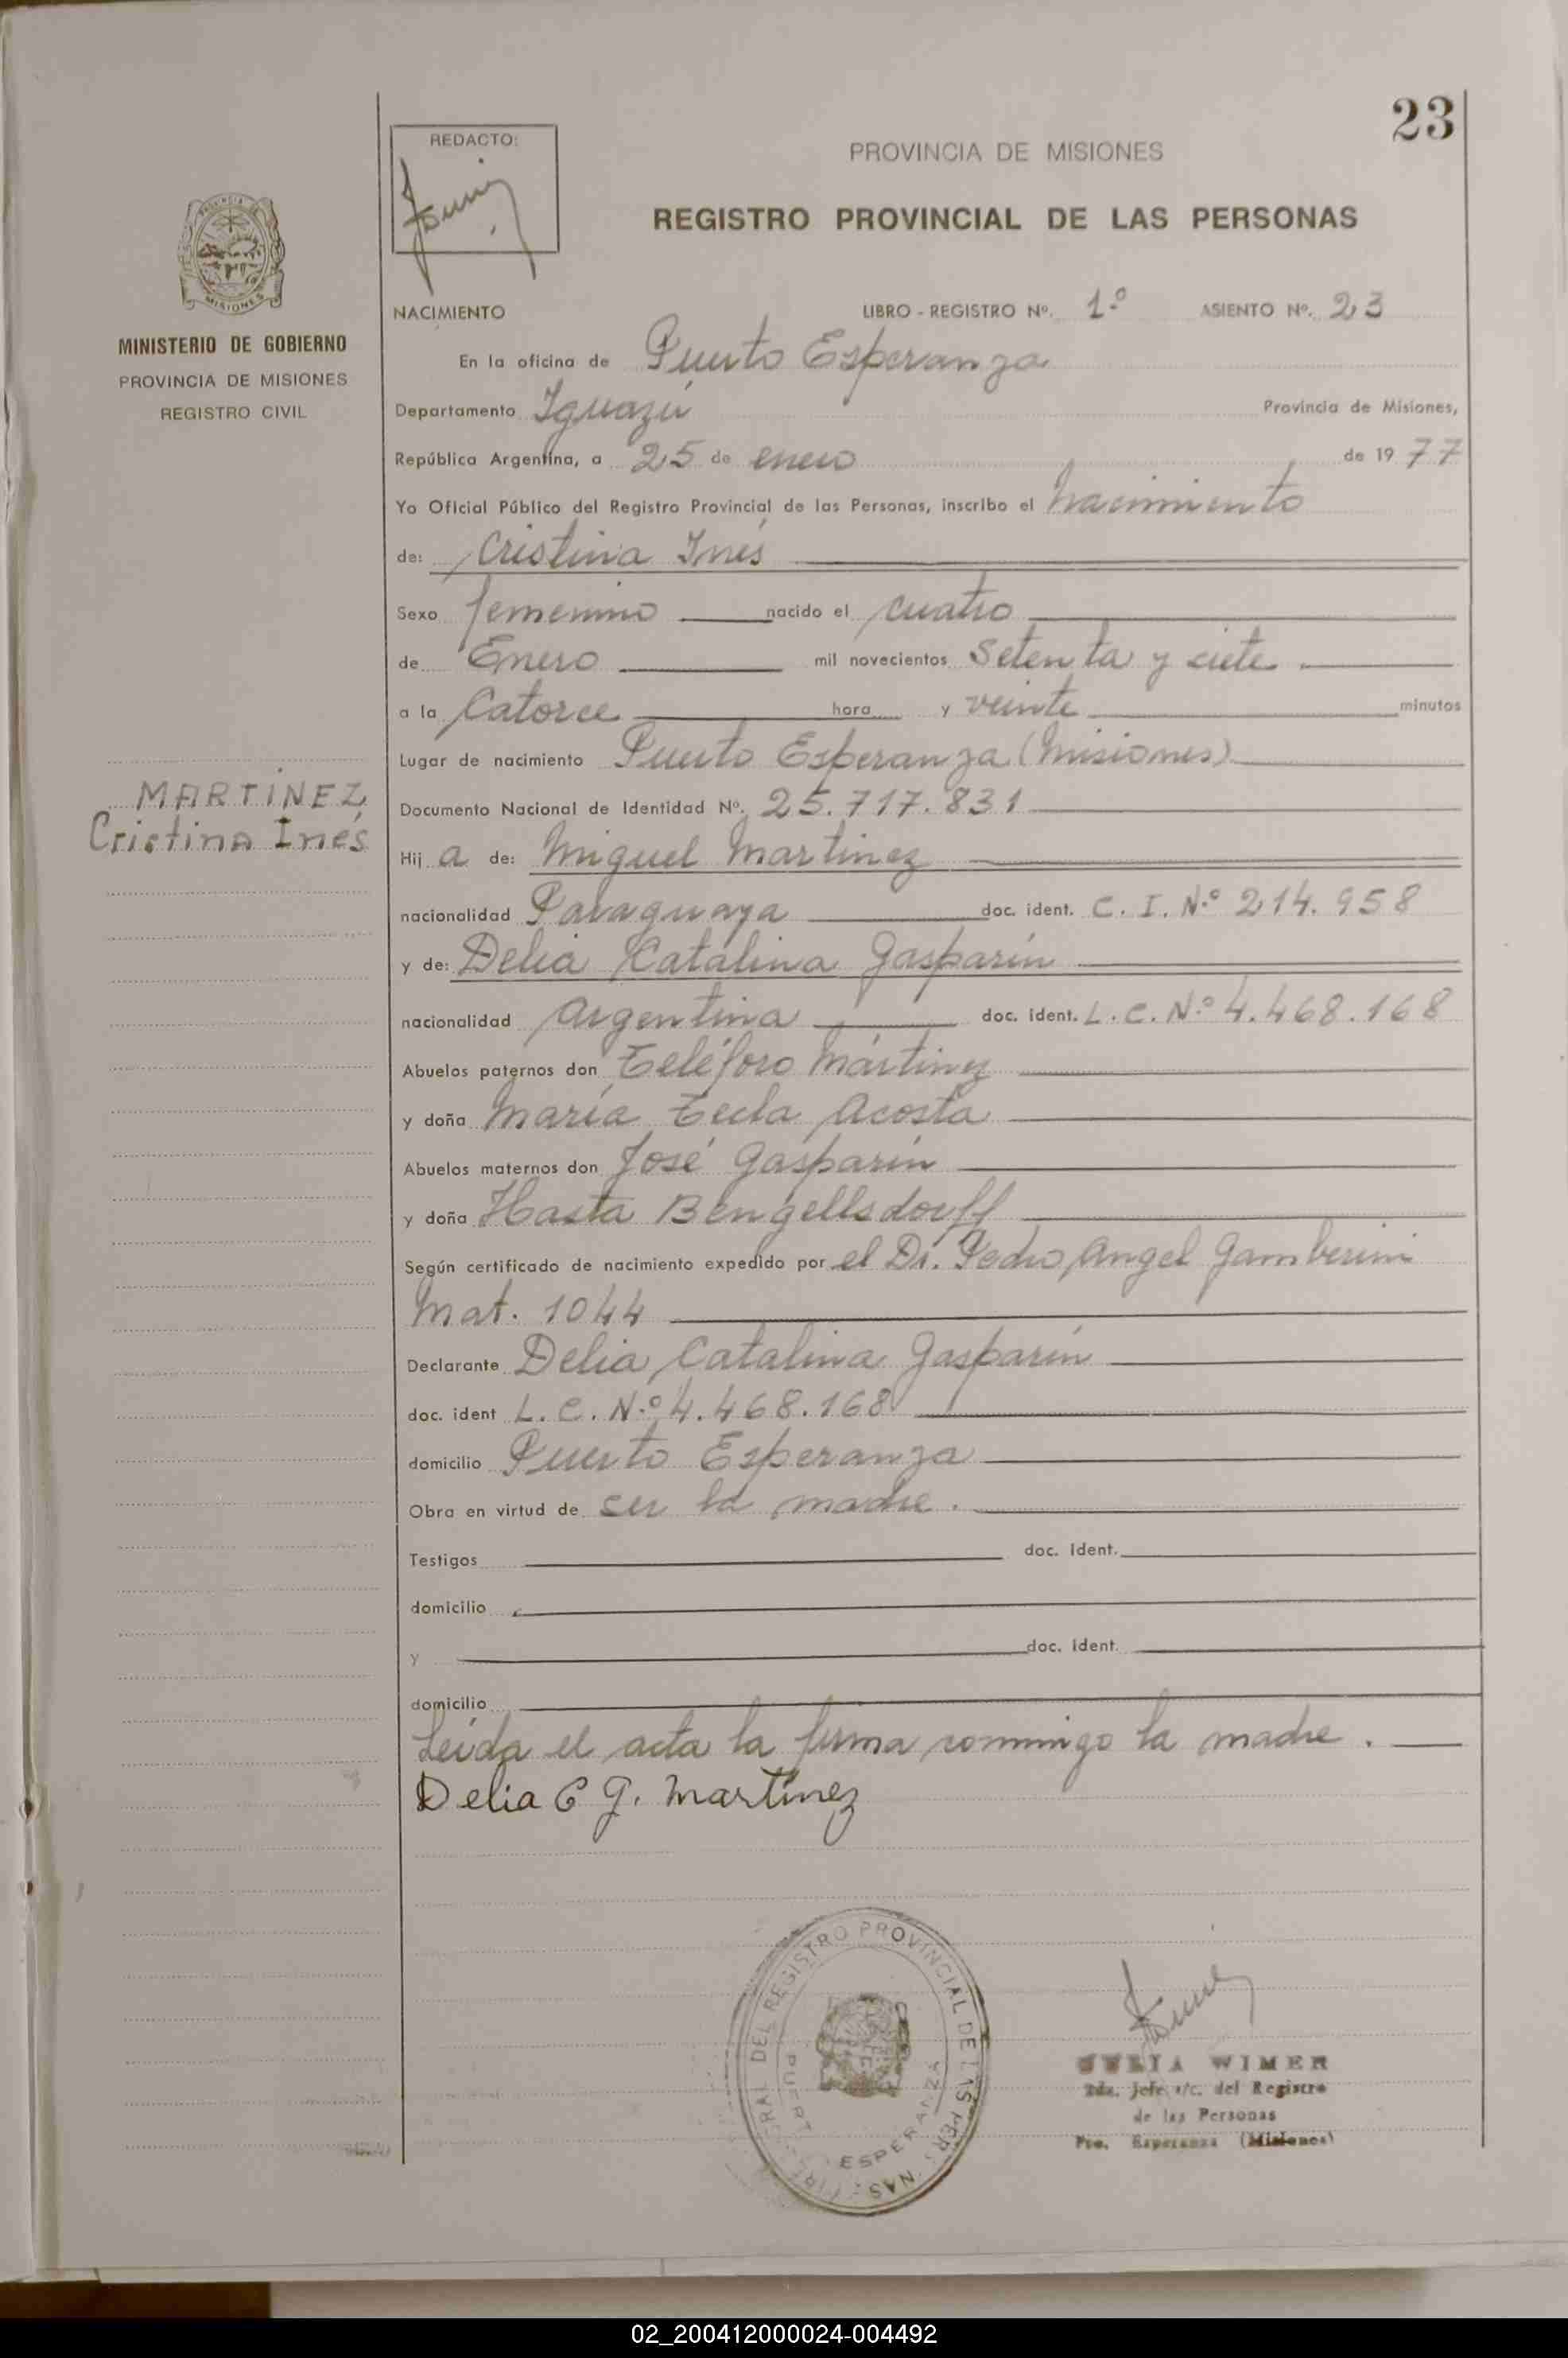 23
REDACTO:
PROVINCIA DE MISIONES
REGISTRO PROVINCIAL DE LAS PERSONAS
MISIONES
MINISTERIO DE GOBIERNO
PROVINCIA DE MISIONES
REGISTRO CIVIL
NACIMIENTO LIBRO - REGISTRO Nº. 1º ASIENTO Nº. 23
En la oficina de Puerto Esperanza
Departamento Iguazú Provincia de Misiones,
República Argentina, a 25 de enero de 19 77
Yo Oficial Público del Registro Provincial de las Personas, inscribo el nacimiento
de: Cristina Inés
Sexo femenino nacido el cuatro
de Enero mil novecientos setenta y siete
a la Catorce hora y veinte minutos
Lugar de nacimiento Puerto Esperanza (Misiones)
MARTINEZ
Cristina Inés
Documento Nacional de Identidad Nº. 25.717.831
Hij a de: Miguel Martinez
nacionalidad Paraguaya doc. ident. C. I. N.º 214.958
y de: Delia Catalina Gasparín
nacionalidad Argentina doc. ident. L. C. N.º 4.468.168
Abuelos paternos don Teléforo Mártinez
y doña María Tecla Acosta
Abuelos maternos don José Gasparín
y doña Hasta Bengellsdorff
Según certificado de nacimiento expedido por el Dr. Pedro Angel Gamberini
Mat. 1044
Declarante Delia Catalina Gasparín
doc. ident L. C. N.º 4.468.168
domicilio Puerto Esperanza
Obra en virtud de ser la madre.
Testigos doc. ident.
domicilio
y doc. ident.
domicilio
Leída el acta la firma conmigo la madre.
Delia C G. Martínez
DEL REGISTRO PROVINCIAL DE LAS PERSONAS
PUERTO ESPERANZA
JULIA WIMER
2da. Jefe a/c. del Registro
de las Personas
Pto. Esperanza (Misiones)
02_200412000024-004492